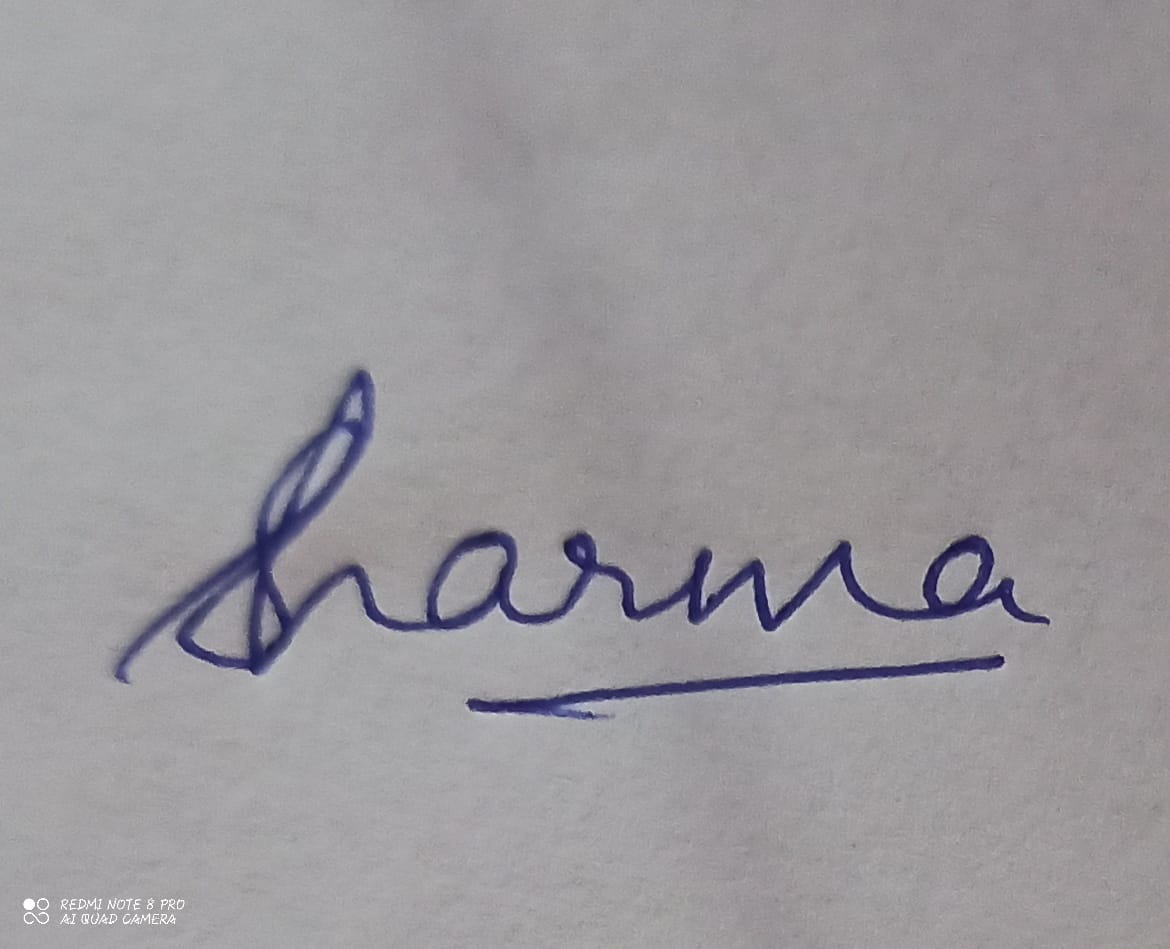 Sharma
REDMI NOTE 8 PRO
AI QUAD CAMERA